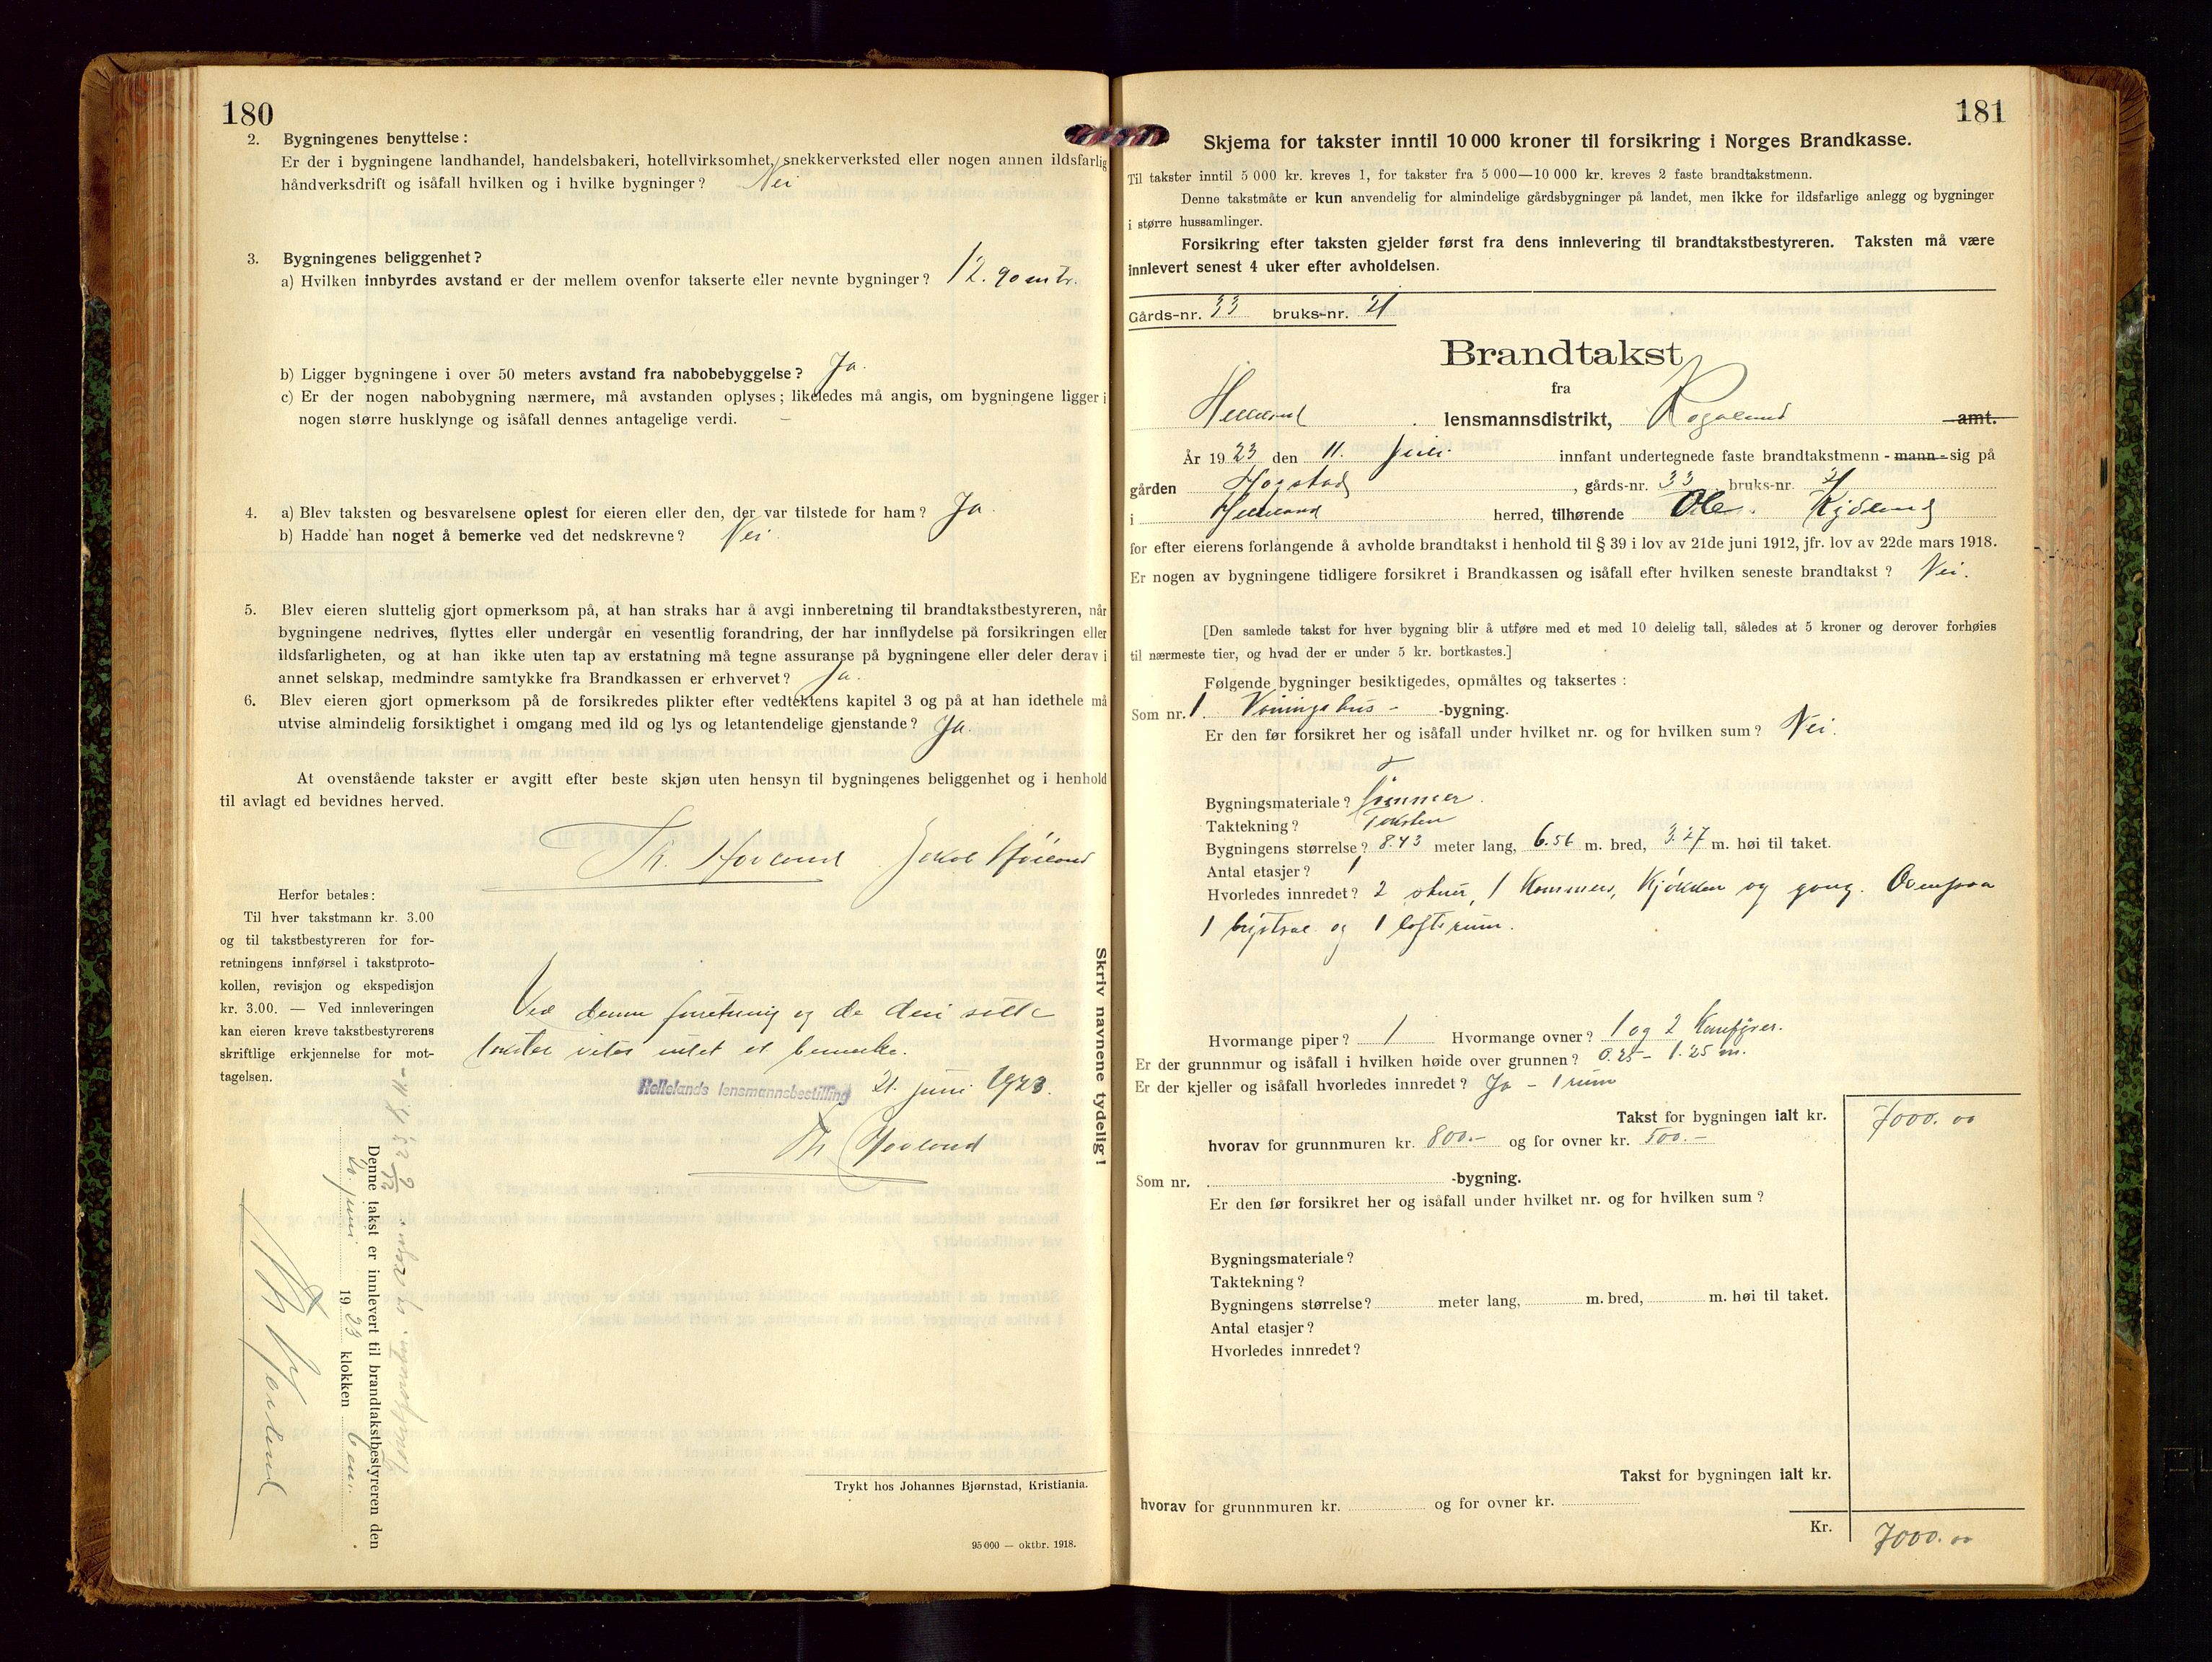 180
2. Bygningenes benyttelse:
Er der i bygningene landhandel, handelsbakeri, hotellvirksomhet, snekkerverksted eller nogen annen ildsfarlig
håndverksdrift og isåfall hvilken og i hvilke bygninger? Nei
3. Bygningenes beliggenhet?
a) Hvilken innbyrdes avstand er der mellem ovenfor takserte eller nevnte bygninger? 12.90 mtr.
b) Ligger bygningene i over 50 meters avstand fra nabobebyggelse? Ja.
c) Er der nogen nabobygning nærmere, må avstanden oplyses; likeledes må angis, om bygningene ligger i
nogen større husklynge og isåfall dennes antagelige verdi. –
4. a) Blev taksten og besvarelsene oplest for eieren eller den, der var tilstede for ham? Ja.
b) Hadde han noget å bemerke ved det nedskrevne? Nei.
5. Blev eieren sluttelig gjort opmerksom på, at han straks har å avgi innberetning til brandtakstbestyreren, når
bygningene nedrives, flyttes eller undergår en vesentlig forandring, der har innflydelse på forsikringen eller
ildsfarligheten, og at han ikke uten tap av erstatning må tegne assuranse på bygningene eller deler derav i
annet selskap, medmindre samtykke fra Brandkassen er erhvervet? Ja.
6. Blev eieren gjort opmerksom på de forsikredes plikter efter vedtektens kapitel 3 og på at han idethele må
utvise almindelig forsiktighet i omgang med ild og lys og letantendelige gjenstande? Ja.
At ovenstående takster er avgitt efter beste skjøn uten hensyn til bygningenes beliggenhet og i henhold
til avlagt ed bevidnes herved.
Th. Hovland Jakob
Herfor betales:
Til hver takstmann kr. 3.00
og til takstbestyreren for for-
retningens innførsel i takstproto-
kollen, revisjon og ekspedisjon
kr. 3.00. — Ved innleveringen
kan eieren kreve takstbestyrerens
skriftlige erkjennelse for mot-
tagelsen.
Ved denne forretning og de deri satte
takster vites intet at bemerke.
Hellelands lensmannsbestilling 21. juni 1923.
Th Hovland
Skriv navnene tydelig!
Denne takst er innlevert til brandtakstbestyreren den
20. juni 1923 klokken 6 em.
Trykt hos Johannes Bjørnstad, Kristiania.
95 000 — oktbr. 1918.
181
Skjema for takster inntil 10 000 kroner til forsikring i Norges Brandkasse.
Til takster inntil 5 000 kr. kreves 1, for takster fra 5 000—10 000 kr. kreves 2 faste brandtakstmenn.
Denne takstmåte er kun anvendelig for almindelige gårdsbygninger på landet, men ikke for ildsfarlige anlegg og bygninger
i større hussamlinger.
Forsikring efter taksten gjelder først fra dens innlevering til brandtakstbestyreren. Taksten må være
innlevert senest 4 uker efter avholdelsen.
Gårds-nr. 33 bruks-nr. 21
Brandtakst
fra
Helleland lensmannsdistrikt, Rogaland amt.
År 1923 den 11. juni innfant undertegnede faste brandtakstmenn - mann - sig på
gården Hogstad, gårds-nr. 33 bruks-nr. 21
i Helleland herred, tilhørende Ole
for efter eierens forlangende å avholde brandtakst i henhold til § 39 i lov av 21de juni 1912, jfr. lov av 22de mars 1918.
Er nogen av bygningene tidligere forsikret i Brandkassen og isåfall efter hvilken seneste brandtakst? Nei.
[Den samlede takst for hver bygning blir å utføre med et med 10 delelig tall, således at 5 kroner og derover forhøies
til nærmeste tier, og hvad der er under 5 kr. bortkastes.]
Følgende bygninger besiktigedes, opmåltes og taksertes:
Som nr. 1 Våningshus - -bygning.
Er den før forsikret her og isåfall under hvilket nr. og for hvilken sum? Nei.
Bygningsmateriale? Tømmer.
Taktekning? Taksten
Bygningens størrelse? 8.43 meter lang, 6.56 m. bred, 3.27 m. høi til taket.
Antal etasjer? 1
Hvorledes innredet? 2 stuer, 1 Kammers, Kjøkken og gang. Ovenpaa
1 og 1 loftsrum.
Hvormange piper? 1 Hvormange ovner? 1 og 2 Komfyrer.
Er der grunnmur og isåfall i hvilken høide over grunnen? 0.25 – 1.25 m.
Er der kjeller og isåfall hvorledes innredet? Ja – 1 rum
Takst for bygningen ialt kr. 7000.00
hvorav for grunnmuren kr. 800.- og for ovner kr. 500.-
Som nr. -bygning.
Er den før forsikret her og isåfall under hvilket nr. og for hvilken sum?
Bygningsmateriale?
Taktekning?
Bygningens størrelse? meter lang, m. bred, m. høi til taket.
Antal etasjer?
Hvorledes innredet?
Takst for bygningen ialt kr.
hvorav for grunnmuren kr. og for ovner kr.
Kr. 7000.00